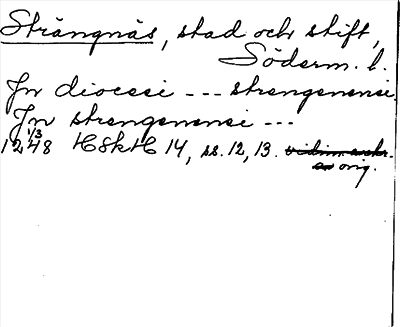 Strängnäs, stad och stift,
Söderm. l.
In diocesi --- strengenensi.
In strengenensi ---
1/3
1248 HSkH 14, ss. 12, 13.
orig.